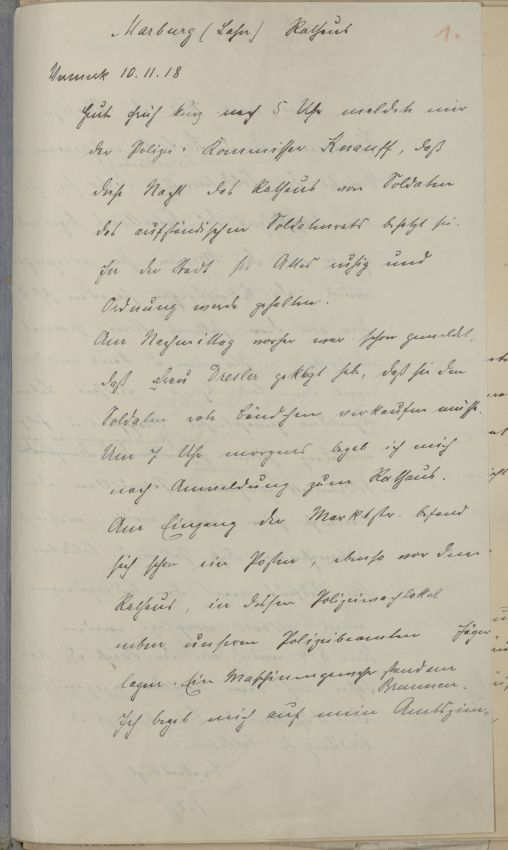 Marburg (Lahn) Rathaus
1.
Vermerk 10.11.18
Heute früh kurz nach 5 Uhr meldete mir
der Polizei-Kommissar Knauff, daß
diese Nacht das Rathaus von Soldaten
des aufständischen Soldatenrats besetzt sei.
In der Stadt sei Alles ruhig und
Ordnung werde gehalten.
Am Nachmittag vorher war schon gemeldet,
daß Frau Dresler geklagt habe, daß sie den
Soldaten rote Bändchen verkaufen müsse.
Um 7 Uhr morgens begab ich mich
nach Anmeldung zum Rathaus.
Am Eingang der Marktstr. befand
sich schon ein Posten, ebenso vor dem
Rathaus, in dessen Polizeiwachlokal
neben unseren Polizeibeamten Jäger
lagen. Ein Maschinengewehr stand am
Brunnen.
Ich begab mich auf mein Amtszim-